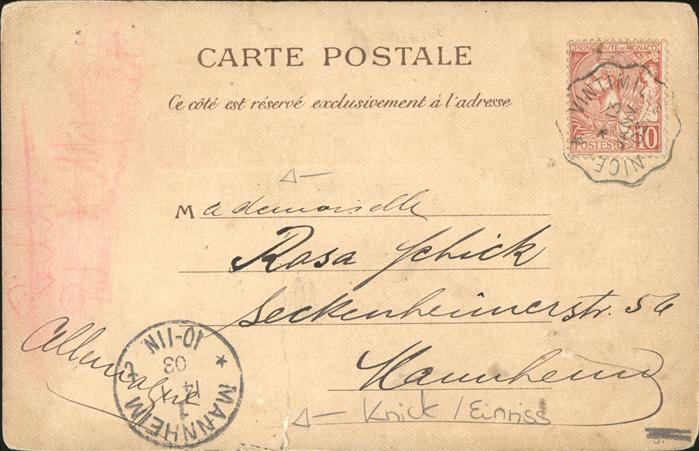 CARTE POSTALE
Ce côté est réservé exclusivement à l'adresse
PRINCIPAUTÉ DE MONACO
POSTES 10
VINTIMILLE NICE
13
JANV
03
Mademoiselle
Rosa Schick
Seckenheimerstr. 56
Mannheim
Allemagne
MANNHEIM 2
14
1
03
10-11N
Knick / Einriss